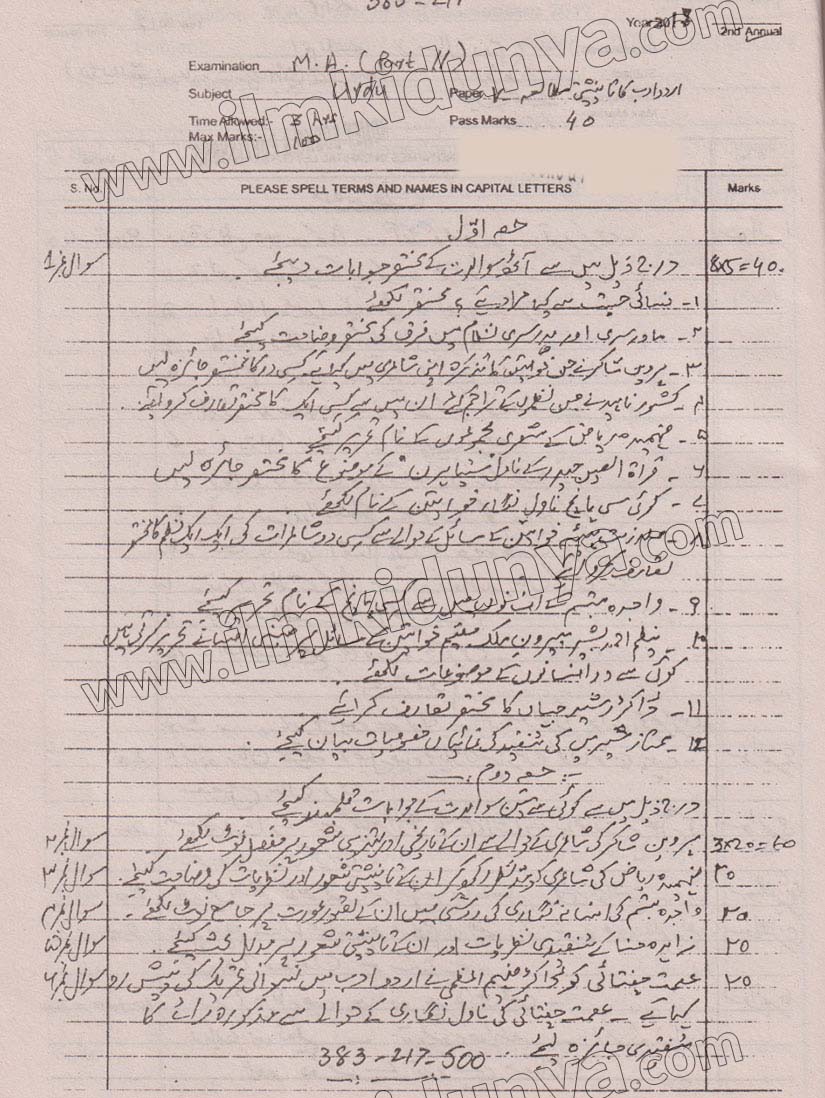 383-217
Year 2013
2nd Annual
Examination M.A. (Part II)
Subject Urdu Paper V اردو ادب کا تانیثی مطالعہ
Time Allowed:- 3 Hrs Pass Marks 40
Max Marks:- 100
S. No. PLEASE SPELL TERMS AND NAMES IN CAPITAL LETTERS Marks
حصہ اوّل
سوال نمبر 1 درج ذیل میں سے آٹھ سوالات کے مختصر جوابات دیجئے۔ 8x5=40
۱۔ نسائی حسیت سے کیا مراد ہے؟ مختصر لکھئے
۲۔ مادرسری اور پدرسری نظام میں فرق کی مختصر وضاحت کیجئے
۳۔ پروین شاکر نے جن خواتین کا تذکرہ اپنی شاعری میں کیا ہے کسی دو کا مختصر جائزہ لیں
۴۔ کشور ناہید نے جن نظموں کے تراجم کئے ان میں سے کسی ایک کا مختصر تعارف کروائیے۔
۵۔ فہمیدہ ریاض کے شعری مجموعوں کے نام تحریر کیجئے
۶۔ قراۃ العین حیدر کے ناول "سیتا ہرن" کے موضوع کا مختصر جائزہ لیں
۷۔ کوئی سی پانچ ناول نگار خواتین کے نام لکھئے
۸۔ خواتین کے مسائل کے حوالے سے کسی دو شاعرات کی ایک ایک نظم کا مختصر
تعارف کروائیے
۹۔ واجدہ تبسم کے افسانوں میں سے کسی پانچ کے نام تحریر کیجئے
۱۰۔ نیلم احمد بشیر بیرون ملک مقیم خواتین کے مسائل پر مبنی افسانے تحریر کرتی ہیں
کوئی سے دو افسانوں کے موضوعات لکھئے
۱۱۔ ڈاکٹر رشید جہاں کا مختصر تعارف کرائیے
۱۲۔ ممتاز شیریں کی تنقید کی نمایاں خصوصیات بیان کیجئے۔
حصہ دوم:
درج ذیل میں سے کوئی سے تین سوالات کے جوابات قلمبند کیجئے۔
سوال نمبر ۲ پروین شاکر کی شاعری کے حوالے سے ان کے تاریخی اور تہذیبی شعور پر مفصل نوٹ لکھئے۔ 3x20=60
سوال نمبر ۳ فہمیدہ ریاض کی شاعری کو مدنظر رکھ کر ان کے تانیثی شعور اور نظریات کی وضاحت کیجئے۔ ۲۰
سوال نمبر ۴ واجدہ تبسم کی افسانہ نگاری کی روشنی میں ان کے تصور عورت پر جامع نوٹ لکھئے۔ ۲۰
سوال نمبر ۵ زاہدہ حنا کے تنقیدی نظریات اور ان کے تانیثی شعور پر مدلل بحث کیجئے۔ ۲۰
سوال نمبر ۶ عصمت چغتائی کو ڈاکٹر فہیم اعظمی نے اردو ادب میں نسوانی تحریک کی پیش رو ۲۰
کہا ہے۔ عصمت چغتائی کی ناول نگاری کے حوالے سے مذکورہ رائے کا
تنقیدی جائزہ لیجئے۔
383-217-500
www.ilmkidunya.com
www.ilmkidunya.com
www.ilmkidunya.com
www.ilmkidunya.com